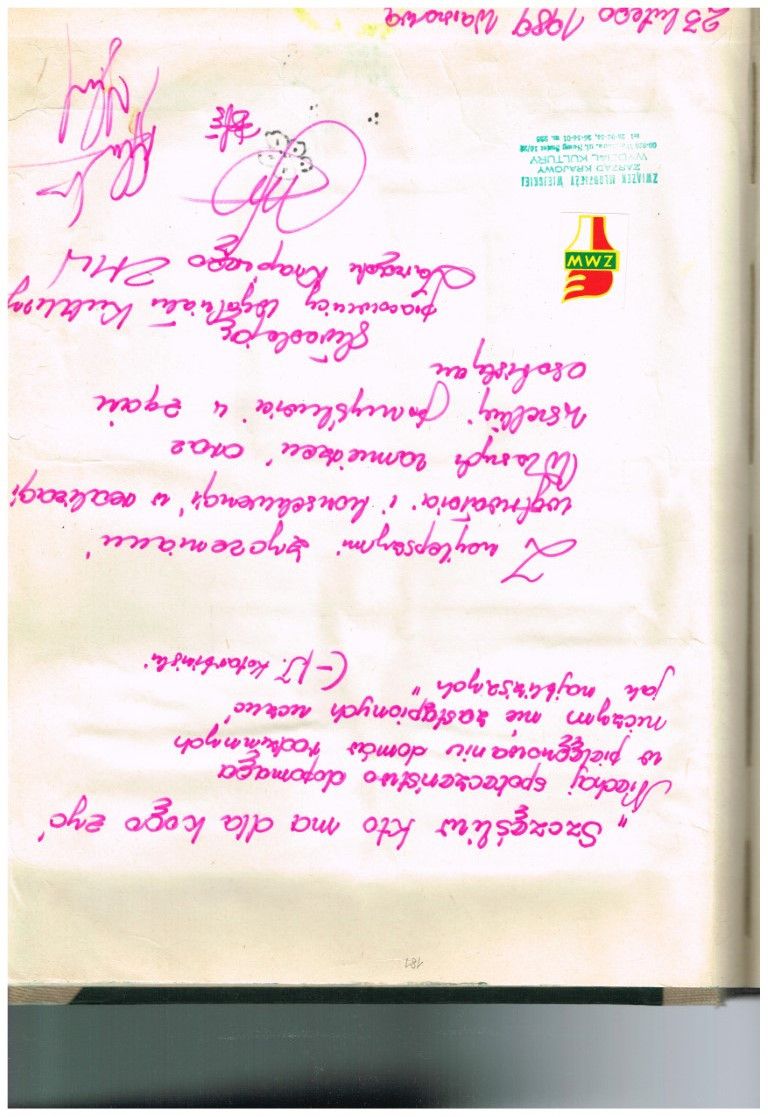 181
"Szczęśliw kto ma dla kogo żyć
Niechaj społeczeństwo dopomaga
w pielęgnowaniu domów rodzinnych
niczym nie zastąpionych uczuć
jak najbliższych"
(-) T. Kotarbiński
Z najlepszymi życzeniami
wytrwałości i konsekwencji w realizacji
Waszych zamierzeń oraz
wszelkiej pomyślności w życiu
osobistym
pracownicy Wydziału Kultury
Zarządu Krajowego ZMW
ZMW
ZWIĄZEK MŁODZIEŻY WIEJSKIEJ
ZARZĄD KRAJOWY
WYDZIAŁ KULTURY
23 lutego 1989 Warszawa